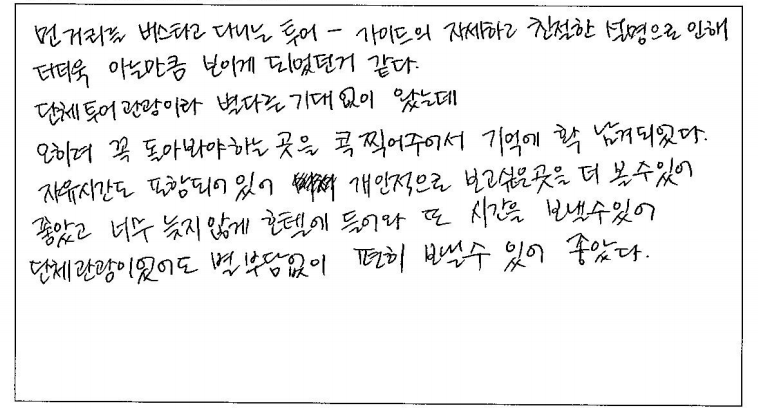 먼거리를 버스타고 다니는 투어 - 가이드의 자세하고 친절한 설명으로 인해
더더욱 아는만큼 보이게 되었던거 같다.
단체투어관광이라 별다른 기대없이 왔는데
오히려 꼭 돌아봐야하는 곳을 콕 찍어주어서 기억에 확 남게되었다.
자유시간도 포함되어 있어 개인적으로 보고싶은곳을 더 볼수있어
좋았고 너무 늦지않게 호텔에 들어와 또 시간을 보낼수있어
단체관광이었어도 별 부담없이 편히 보낼수 있어 좋았다.